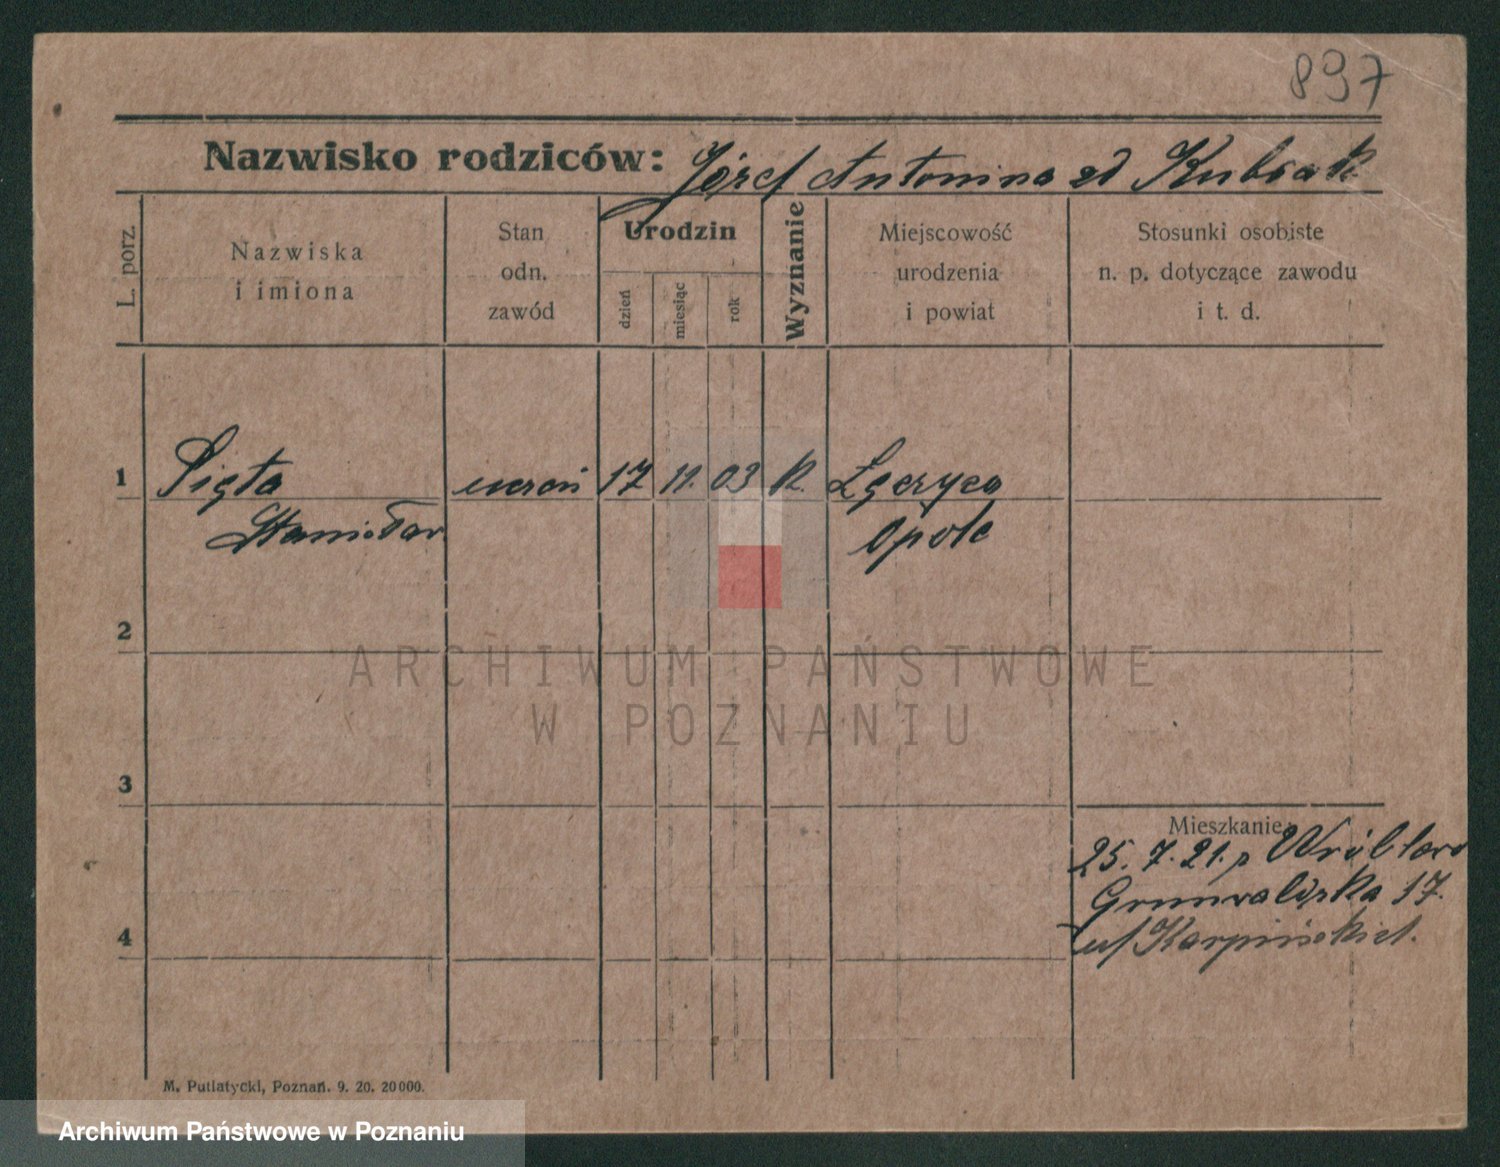 897
Nazwisko rodziców: Józef Antonina zd Kubiak
L. porz.
Nazwiska
i imiona
Stan
odn.
zawód
Urodzin
dzień
miesiąc
rok
Wyznanie
Miejscowość
urodzenia
i powiat
Stosunki osobiste
n. p. dotyczące zawodu
i t. d.
1
Pięta
uczeń
17
11.
03
k.
Stanisław
Opole
2
ARCHIWUM PAŃSTWOWE
W POZNANIU
3
Mieszkanie:
25. 7. 21. Wróblew
Grunwaldzka 17.
Karpińskich.
4
M. Putiatycki, Poznań. 9. 20. 20000.
Archiwum Państwowe w Poznaniu